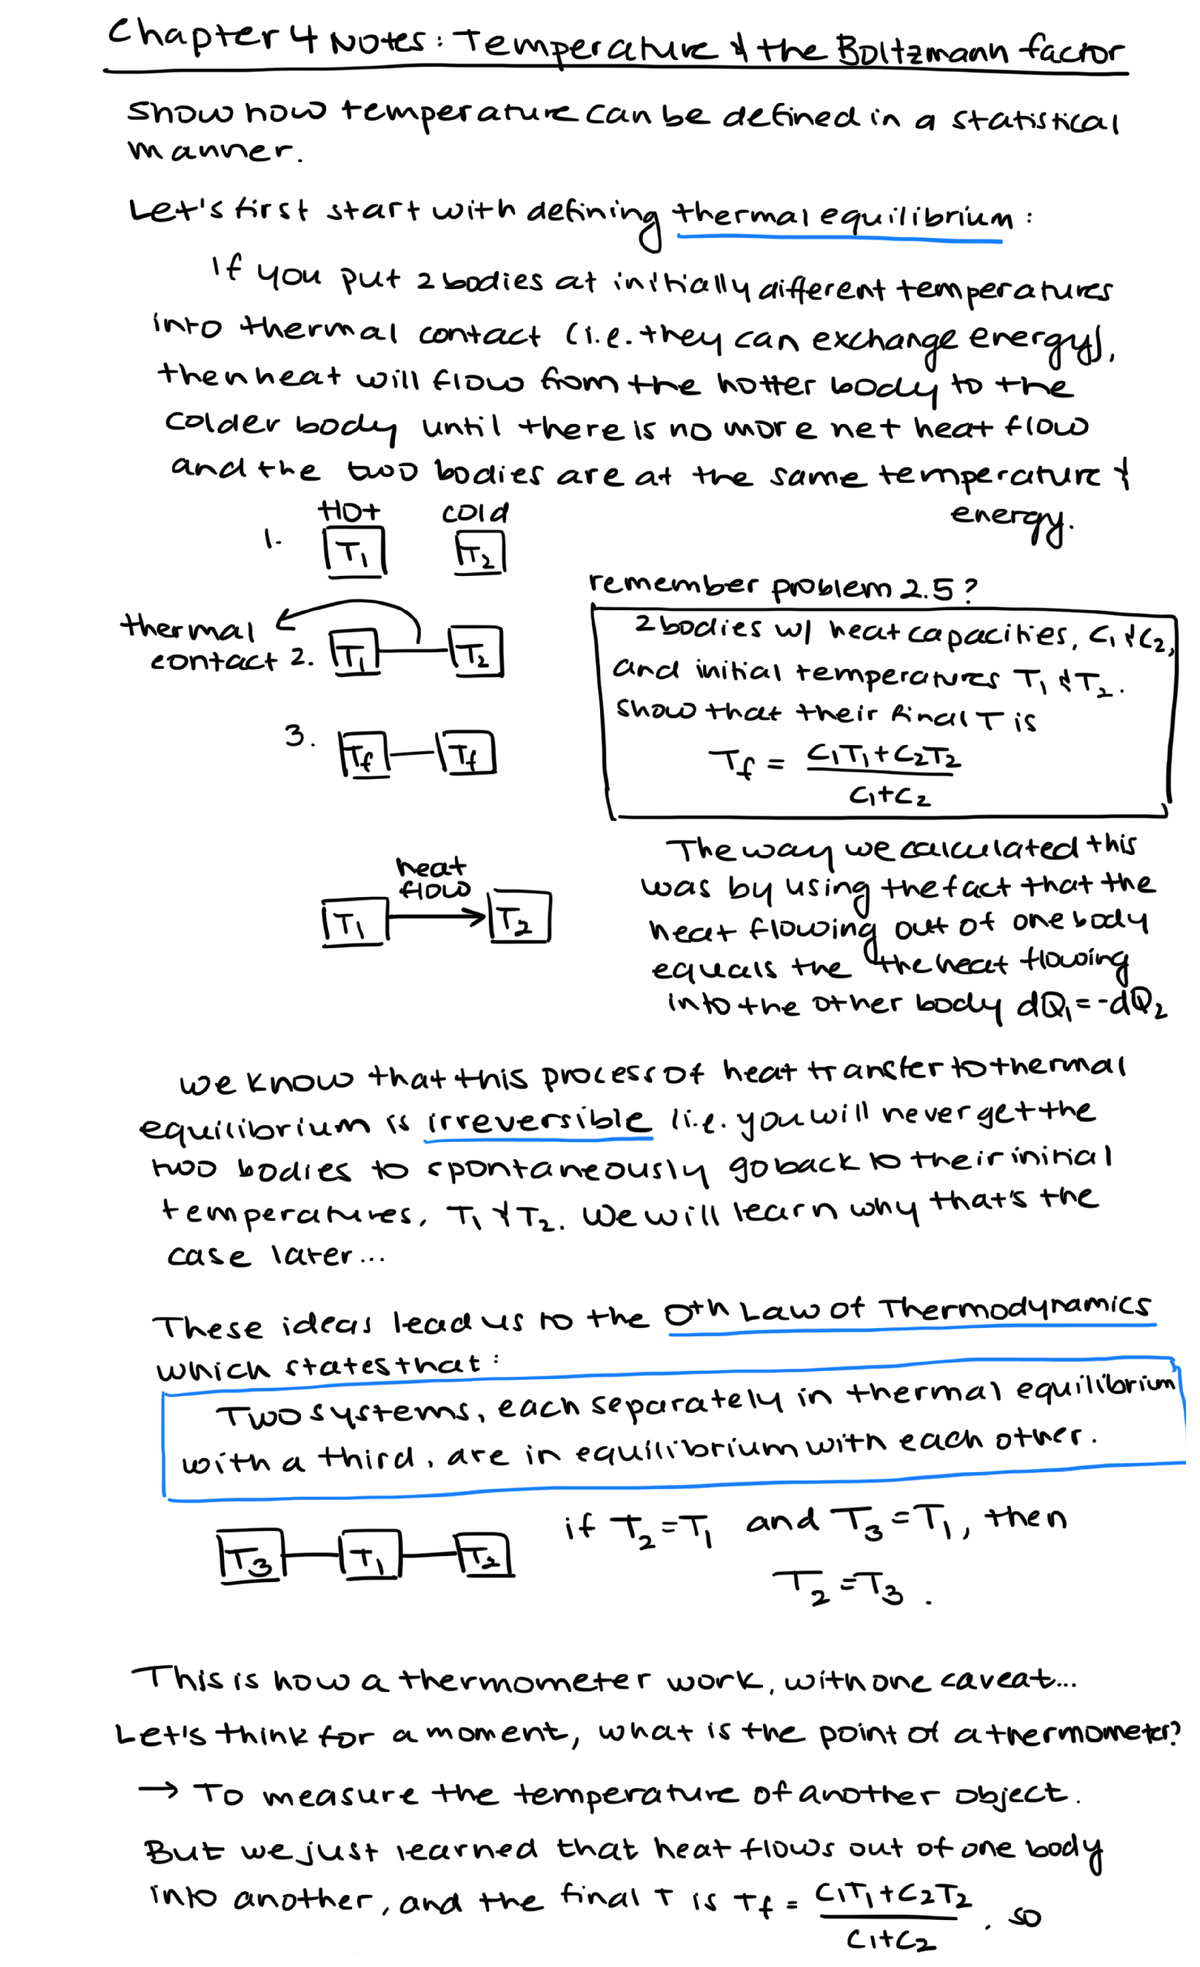 Chapter 4 Notes: Temperature & the Boltzmann factor
Show how temperature can be defined in a statistical
manner.
Let's first start with defining thermal equilibrium:
If you put 2 bodies at initially different temperatures
into thermal contact (i.e. they can exchange energy),
then heat will flow from the hotter body to the
colder body until there is no more net heat flow
and the two bodies are at the same temperature &
energy.
HOt cold
1. T₁ T₂
thermal
contact 2. T₁ T₂
3. Tf Tf
remember problem 2.5?
2 bodies w/ heat capacities, C₁ & C₂,
and initial temperatures T₁ & T₂.
Show that their final T is
Tf = C₁T₁+C₂T₂
C₁+C₂
heat
flow
T₁ T₂
The way we calculated this
was by using the fact that the
heat flowing out of one body
equals the the heat flowing
into the other body dQ₁=-dQ₂
we know that this process of heat transfer to thermal
equilibrium is irreversible (i.e. you will never get the
two bodies to spontaneously go back to their initial
temperatures, T₁ & T₂. We will learn why that's the
case later...
These ideas lead us to the 0th Law of Thermodynamics
which states that:
Two systems, each separately in thermal equilibrium
with a third, are in equilibrium with each other.
T₃ T₁ T₂ if T₂=T₁ and T₃=T₁, then
T₂=T₃.
This is how a thermometer work, with one caveat...
Let's think for a moment, what is the point of a thermometer?
→ To measure the temperature of another object.
But we just learned that heat flows out of one body
into another, and the final T is Tf = C₁T₁+C₂T₂ , so
C₁+C₂